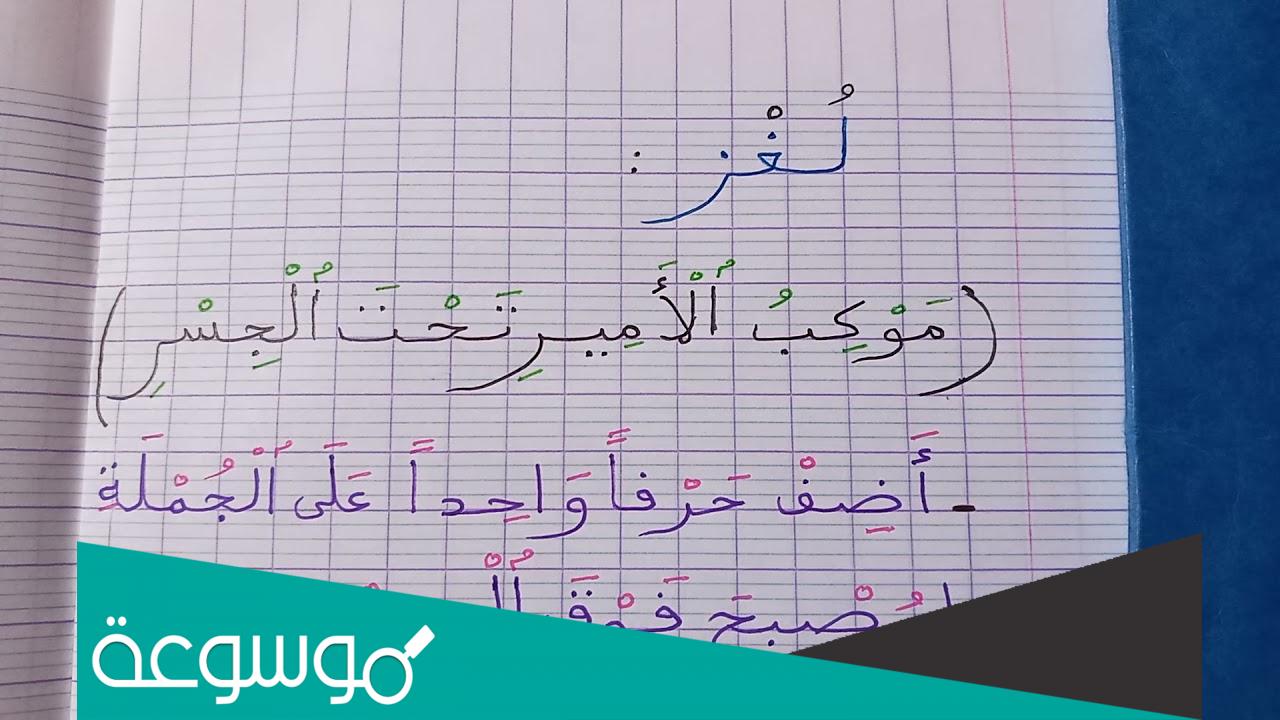 لُغْز :
(مَوْكِبُ ٱلْأَمِيرِ تَحْتَ ٱلْجِسْرِ)
- أَضِفْ حَرْفاً وَاحِداً عَلَى ٱلْجُمْلَةِ
فَوْقَ
موسوعة